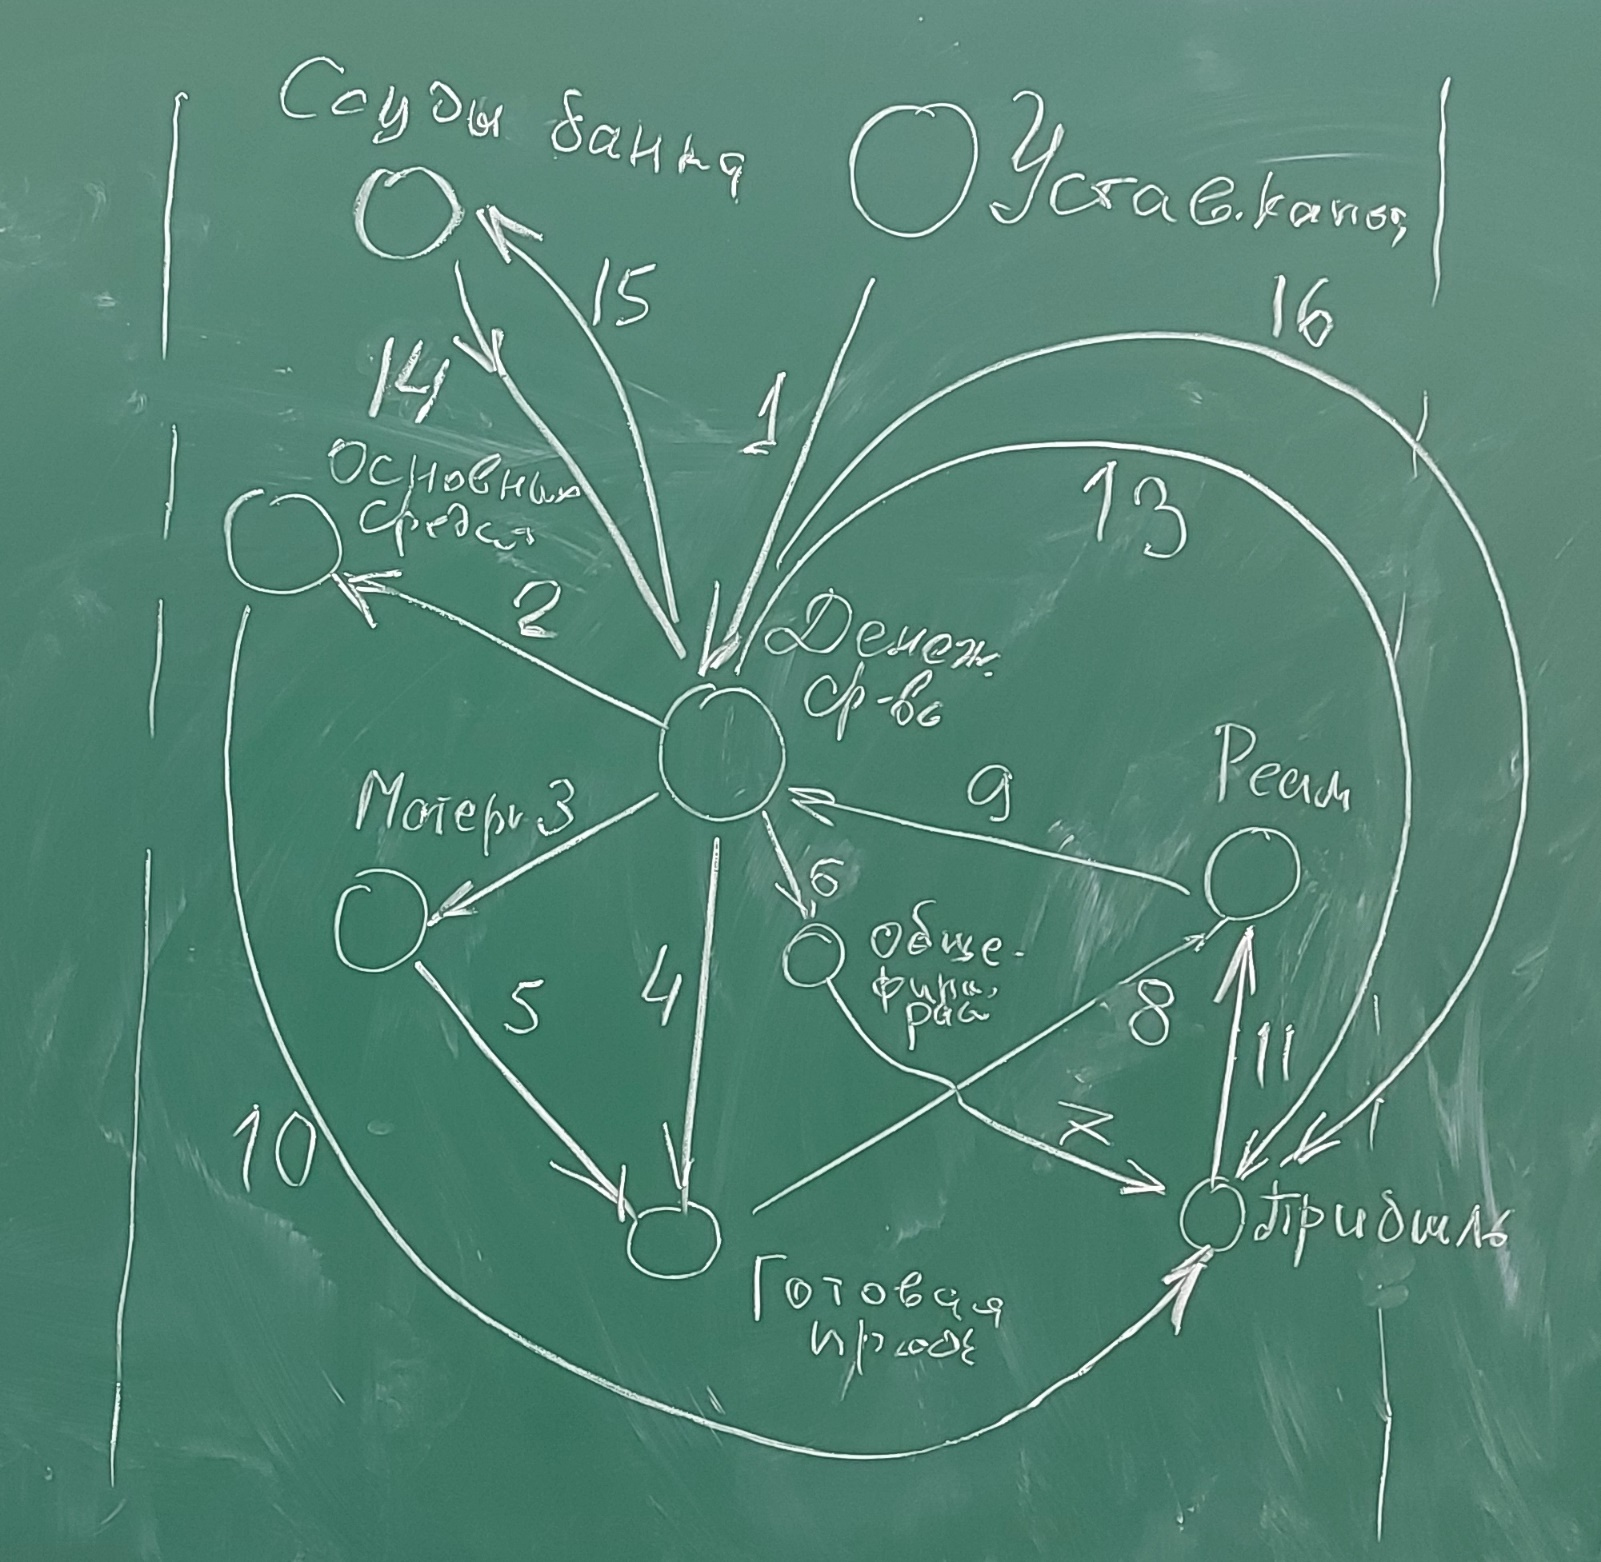 Ссуды банка
Устав.капит
15
16
14
1
Основные
средст
13
2
Денеж.
ср-во
Матери
3
9
Реал
6
5
4
Обще-
фин.
рас
8
11
10
7
Прибыль
Готовая
прод